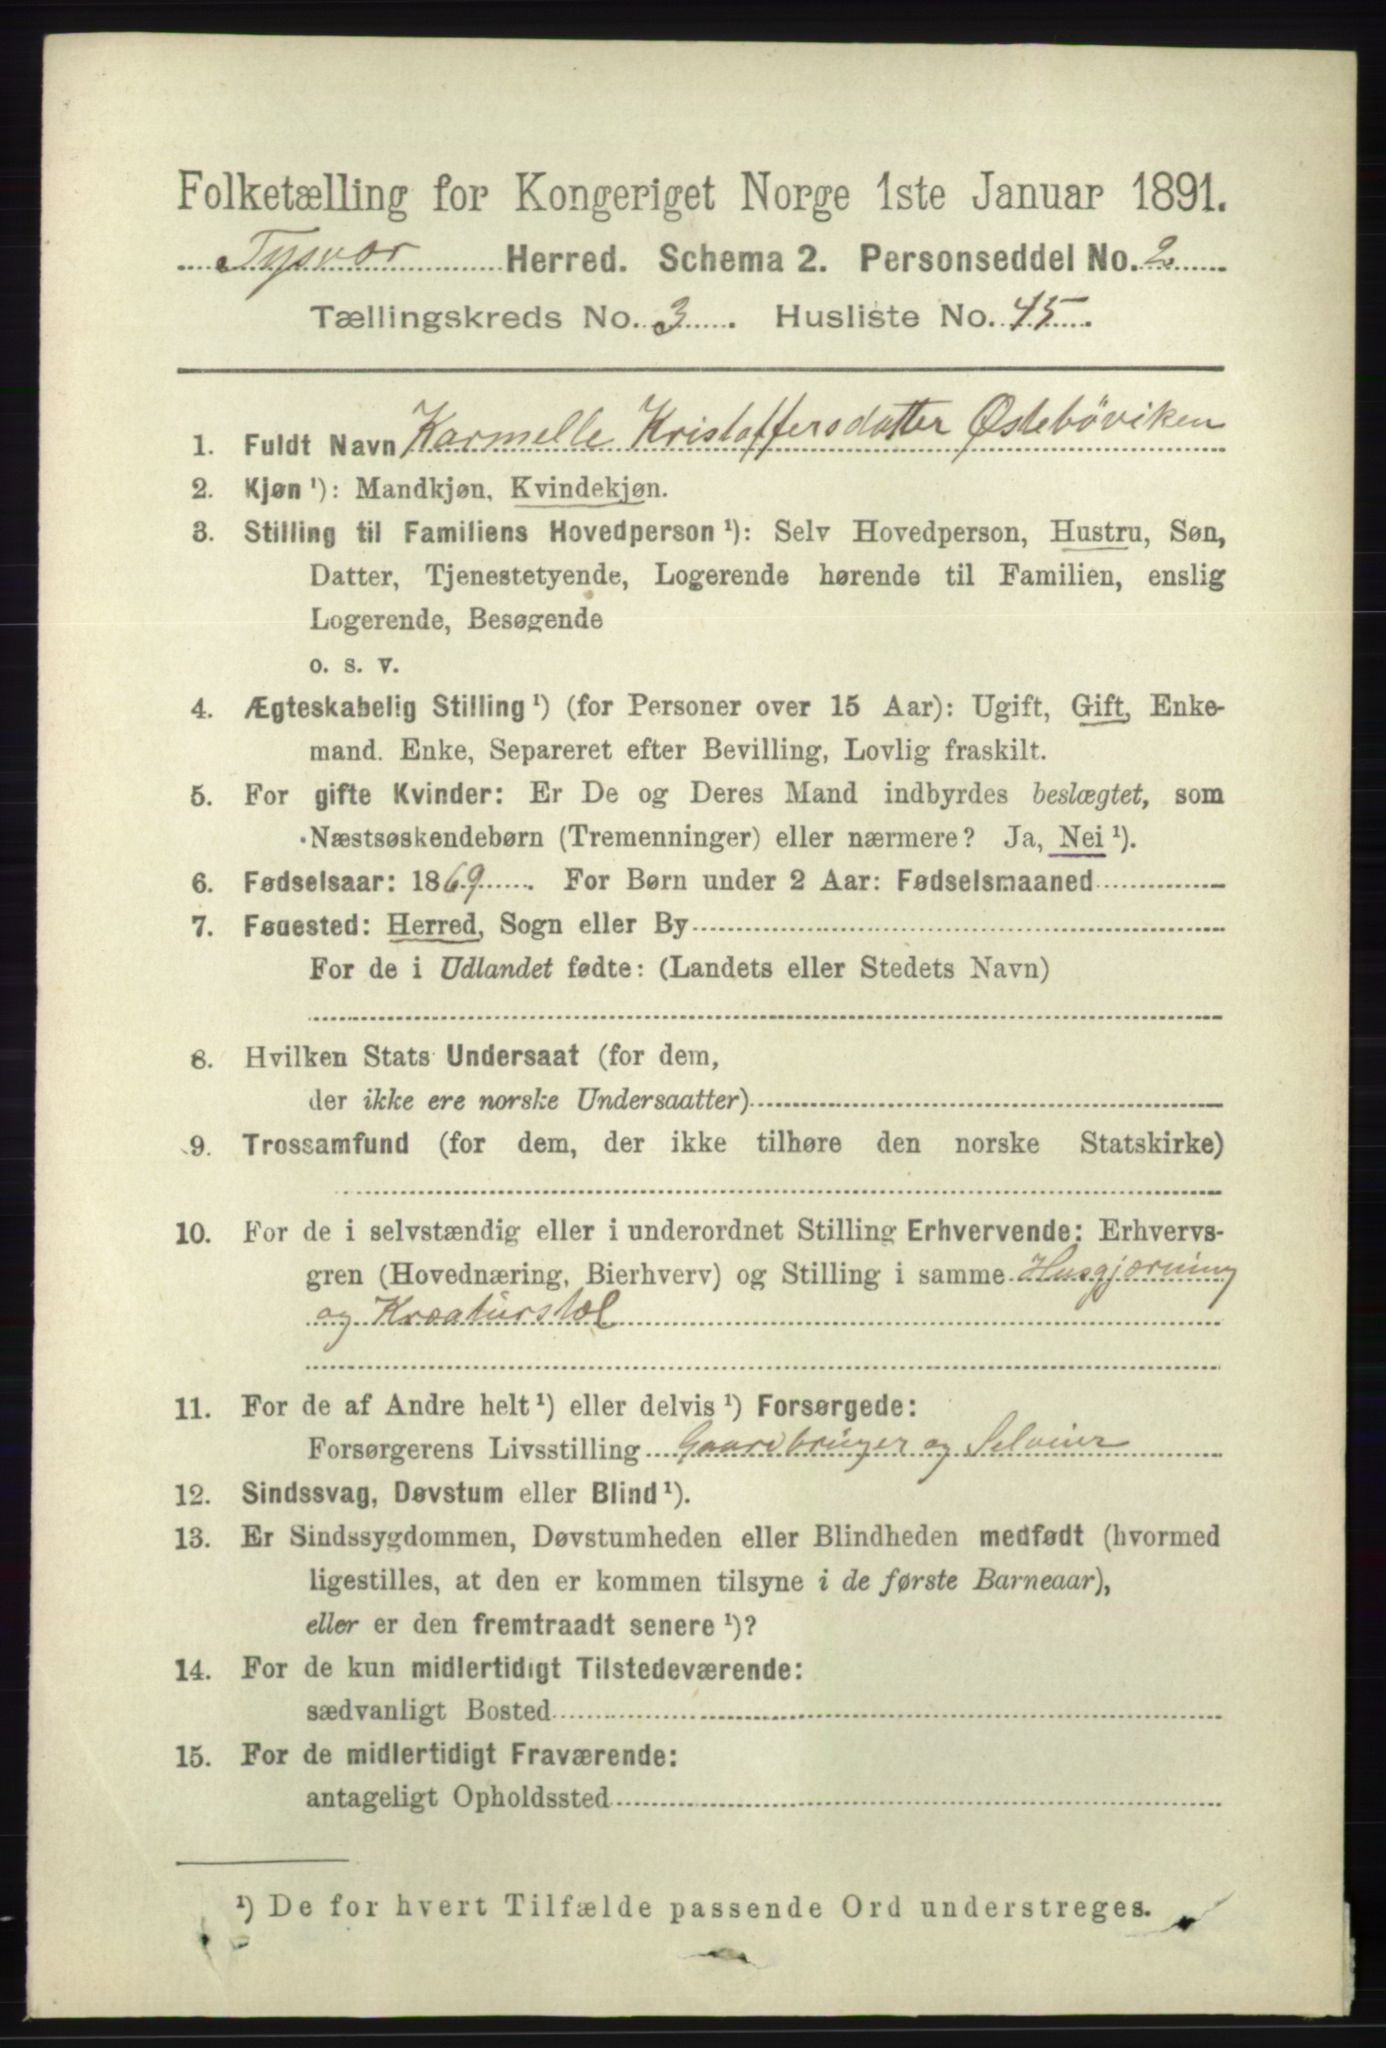 Folketælling for Kongeriget Norge 1ste Januar 1891.
Tysvær Herred. Schema 2. Personseddel No. 2
Tællingskreds No. 3 . Husliste No. 45 .
1. Fuldt Navn Karmelle Kristoffersdatter Østebøviken
2. Kjøn ¹): Mandkjøn, Kvindekjøn.
3. Stilling til Familiens Hovedperson ¹): Selv Hovedperson, Hustru, Søn,
Datter, Tjenestetyende, Logerende hørende til Familien, enslig
Logerende, Besøgende
o. s. v.
4. Ægteskabelig Stilling ¹) (for Personer over 15 Aar): Ugift, Gift, Enke-
mand. Enke, Separeret efter Bevilling, Lovlig fraskilt.
5. For gifte Kvinder: Er De og Deres Mand indbyrdes beslægtet, som
Næstsøskendebørn (Tremenninger) eller nærmere? Ja, Nei ¹).
6. Fødselsaar: 1869 . For Børn under 2 Aar: Fødselsmaaned
7. Fødested: Herred, Sogn eller By
For de i Udlandet fødte: (Landets eller Stedets Navn)
8. Hvilken Stats Undersaat (for dem,
der ikke ere norske Undersaatter)
9. Trossamfund (for dem, der ikke tilhøre den norske Statskirke)
10. For de i selvstændig eller i underordnet Stilling Erhvervende: Erhvervs-
gren (Hovednæring, Bierhverv) og Stilling i samme Husgjørning
og Kreaturstel
11. For de af Andre helt ¹) eller delvis ¹) Forsørgede:
Forsørgerens Livsstilling Gaardbruger og Selveier
12. Sindssvag, Døvstum eller Blind ¹).
13. Er Sindssygdommen, Døvstumheden eller Blindheden medfødt (hvormed
ligestilles, at den er kommen tilsyne i de første Barneaar),
eller er den fremtraadt senere ¹)?
14. For de kun midlertidigt Tilstedeværende:
sædvanligt Bosted
15. For de midlertidigt Fraværende:
antageligt Opholdssted
¹) De for hvert Tilfælde passende Ord understreges.